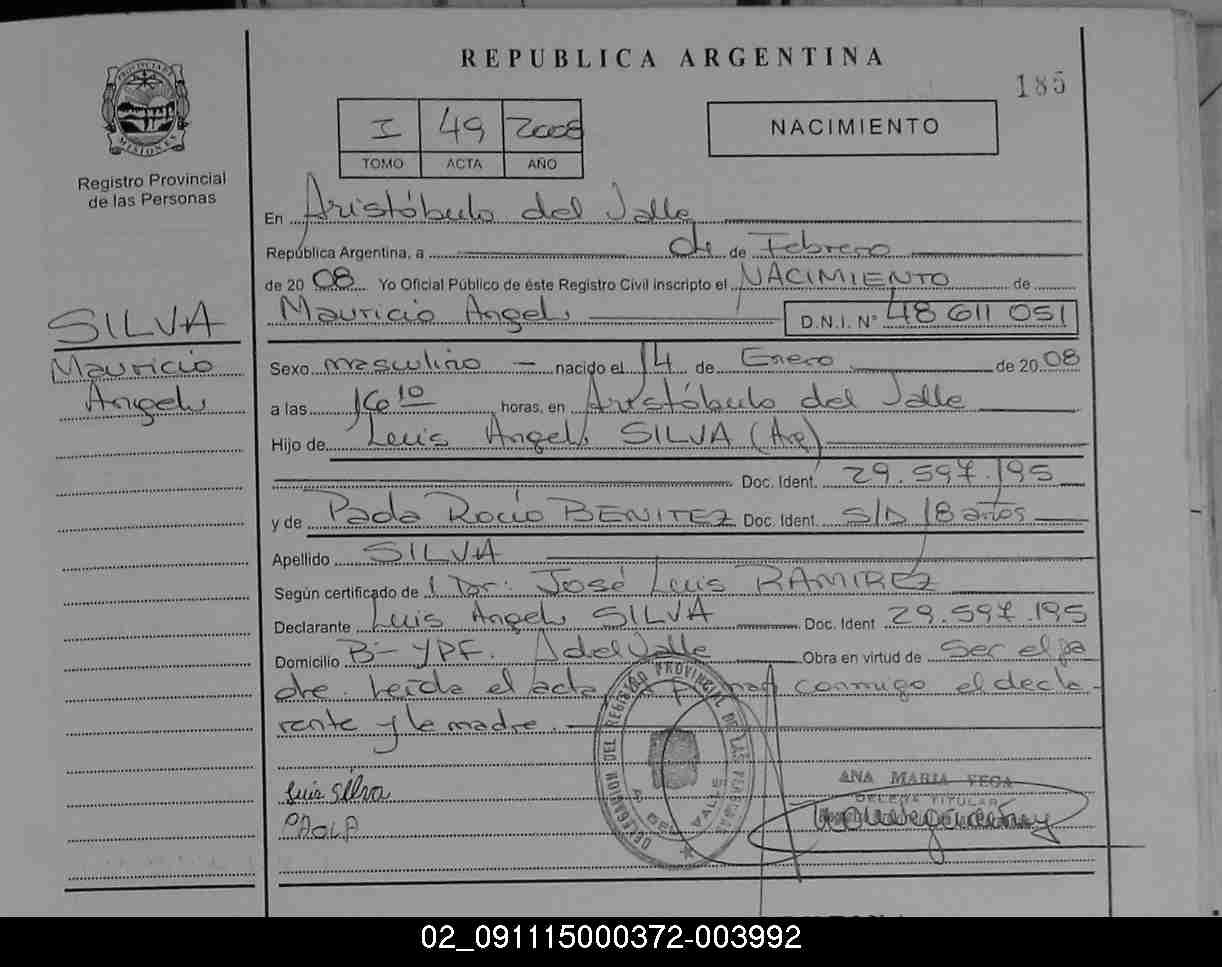 REPUBLICA ARGENTINA
185
PROVINCIA DE MISIONES
Registro Provincial
de las Personas
I 49 2008
TOMO ACTA AÑO
NACIMIENTO
En Aristóbulo del Valle
República Argentina, a de de Febrero
de 20 08 Yo Oficial Público de éste Registro Civil inscripto el NACIMIENTO de
Mauricio Angel D.N.I. Nº 48 611 051
SILVA
Mauricio
Angel
Sexo masculino nacido el 14 de Enero de 20 08
a las 16 10 horas, en Aristóbulo del Valle
Hijo de Luis Angel SILVA (Arg)
Doc. Ident. 29.597.195
y de Paola Rocío BENITEZ Doc. Ident. S/D 18 años
Apellido SILVA
Según certificado de Dr: José Luis RAMIREZ
Declarante Luis Angel SILVA Doc. Ident 29.597.195
Domicilio Bº YPF. A del Valle Obra en virtud de Ser el pa
dre. Leída el acta, conmigo el decla-
rante y la madre.
Luis Silva
PAOLA
DELEGACION DEL REGISTRO PROVINCIAL DE LAS PERSONAS
A. DEL VALLE
ANA MARIA VEGA
DELEG. TITULAR
02_091115000372-003992